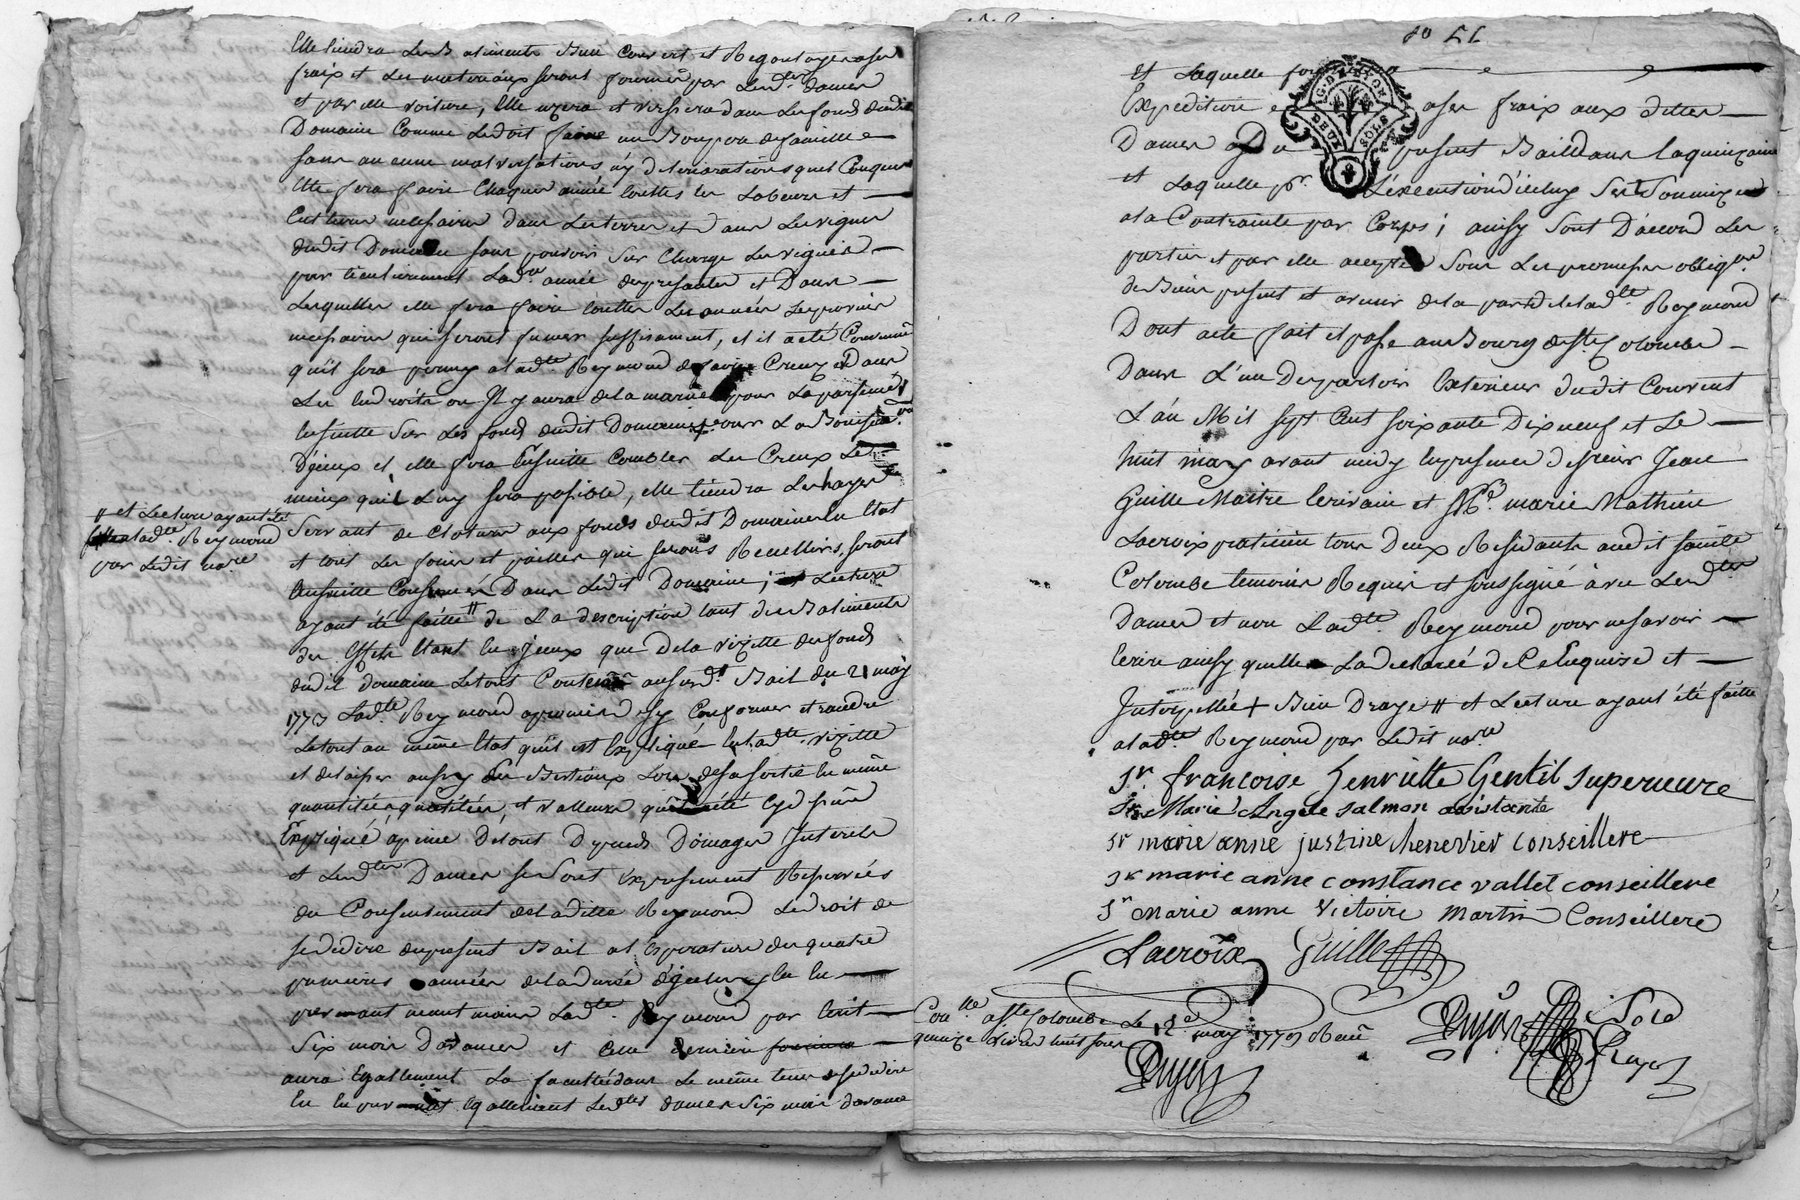 Elle tiendra Les Batiments Bien Couvert et Regoutoyer a ses
fraix et Les materiaux seront fournier par Lesd. dames
et par elle voiture, Elle usera et versera dans Les fond dudit
Domaine Comme Le doit faire un Bon pere de famille
sans aucune malversations n'y deteriorations quel Conque
Elle fera faire Chaque année touttes les Labeurs et
Cultures necessaires dans Les terres et dans Les vignes
dudit Domaine sans pouvoir Sur Charger Les vignes
particulierement Lad. année de presente et Dans
Lesquelles elle fera faire touttes Les années Les provins
necessaires qui seront fumer suffisament, et il a eté Convenu
quil sera permis a lad.tte Reymond de faire Creux et Dans
Les Endroits ou Il y aura de la marne pour La parsemer
Ensuitte Sur Les fond dudit Domaine pour La Bonification
D'iceux et elle fera Ensuitte Combler Les Creux Le
mieux quil Luy sera possible, elle tiendra Les hayes
Servant de Cloture aux fonds dudit Domaine En Etat
et tout Les foins et pailles qui seront Recuellies, seront
Ensuitte Consumés Dans Ledit Domaine; et Lecture
ayant été faitte # de La description tant des Batiments
des Effets Etant En Iceux que de la visitte des fonds
dudit domaine Le tout Contenu au susd. Bail du 21 may
1773 Lad.tte Reymond a promis s'y Conformer et rendre
Le tout au même Etat quil est Expliqué En lad.tte visitte
et de laisser aussy des Bestiaux Lors de sa sortie En même
quantitée, qualitée, et valleurs qu'il a été cy devant
Expliqué a peine De tout Dépends Domages Interets
et Lesd.tes Dames se sont Expressement Reservées
du Consentement de ladite Reymond Le droit de
se dedire du present Bail a l'Expiration des quatre
premieres années de la durée d'icelluy En En
prevenant neanmoins Lad.tte Reymond par Ecrit
Six mois D'avance et Cette derniere
aura Egallement La faculté dans Le même tems de se dedire
En En prevenant Egallement Lesd.tes dames Six mois d'avance
# et Lecture ayant été
faitte a lad.tte Reymond
par Ledit no.re
Et Laquelle
G. DE LYON
DEUX SOLS
Expedition a ses fraix aux dittes
Dames Du present Bail Dans La quinzaine
et Laquelle p.r L'execution d'icelluy S'est Soumize
a la Contrainte par Corps; ainsy Sont D'accord Les
parties et par elle accepté Sous Les promesses oblig.ons
de Biens present et avenir de la part de lad.tte Reymond
Dont acte fait et passé au Bourg de S.te Colombe
Dans L'un Des parloir Exterieur dudit Couvent
L'an Mil Sept Cent soixante Dix neuf et Le
huit may avant midy En presence de sieur Jean
Guille Maitre Ecrivain et S.r marie Mathieu
Lacroix praticien tous Deux Residants audit sainte
Colombe temoins Requis et soussigné avec Lesd.tes
Dames et non Lad.tte Reymond pour ne savoir
Ecrire ainsy quelle La declaréé de Ce Enquise et
Interpellée + Bien Draye # et Lecture ayant été faitte
a lad.tte Reymond par Ledit no.re
Sr francoise henriette Gentil superieure
Sr Marie Angele Salmon assistante
Sr marie anne justine chenevier conseillere
Sr marie anne constance vallet conseillere
Sr Marie anne Victoire Martin Conseillere
Lacroix Guille
Con.lle a S.te Colombe Le 12 may 1779 Reçu
quinze livres huit sols